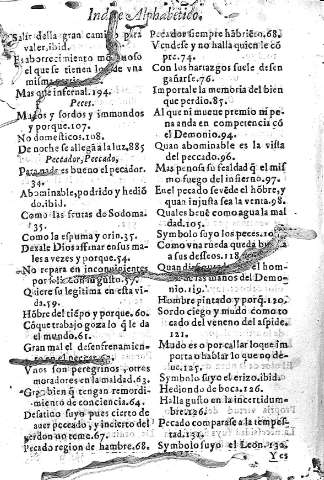 Indice Alphabetico.
Salir desta gran camino para
valer, ibid.
El aborrecimiento
el que se tienen los de vna
misma
Mas que infernal. 194.
Peces.
Mudos y sordos y immundos
y porque. 107.
No domesticos. 108.
De noche se allegã a la luz, 885
Peccador, Peccado,
Para nada es bueno el pecador.
34.
Abominable, podrido y hediõ
do. ibid.
Como las frutas de Sodoma.
35.
Como la espuma y orin. 35.
Dexale Dios assinar en sus ma-
les a vezes y porque. 54.
No repara en inconuinientes
por solo su gusto. 57.
Quiere su legitima en esta vi-
da. 59.
Hõbre del tiẽpo y porque. 60.
Cõque trabajo goza lo q̃ le da
el mundo. 61.
Gran mal el desenfrenamien-
to en el peccar. 63.
Vnos son peregrinos, otros
moradores en la maldad. 63.
Gran bien q̃ tengan remordi-
miento de conciencia. 64.
Desatino suyo pues cierto de
auer peccado, y incierto del
perdon no teme. 67.
Pecado region de hambre. 68.
Pecador siempre hãbriẽto. 68.
Vendese y no halla quien le cõ
pre. 74.
Con los hartazgos suele desen
gañarse. 76.
Importale la memoria del bien
que perdio. 85.
Al que ni mueue premio ni pe-
na anda en competencia cõ
el Demonio. 94.
Quan abominable es la vista
del peccado. 96.
Mas pena
su fealdad q̃ el mis
mo fuego del infierno. 97.
En el pecado se vẽde el hõbre, y
quan injusta sea la venta. 98.
Quales beuẽ como agua la mal
dad. 105.
Symbolo suyo los peces. 10
Como vna rueda queda
a sus desseos. 118
Quan
el hom-
bre
las manos del Demo-
nio. 119.
Hombre pintado y porq̃. 120.
Sordo ciego y mudo como to
cado del veneno del aspide,
121.
Mudo es o por callar lo que im
porta o hablar lo que no de-
ue. 125.
Symbolo suyo el erizo, ibid.
Hediondo de boca. 126.
Halla gusto en la incertidum-
bre. 126.
Pecado comparase a la tempes-
tad. 131.
Symbolo suyo el Leon. 132.
Y es